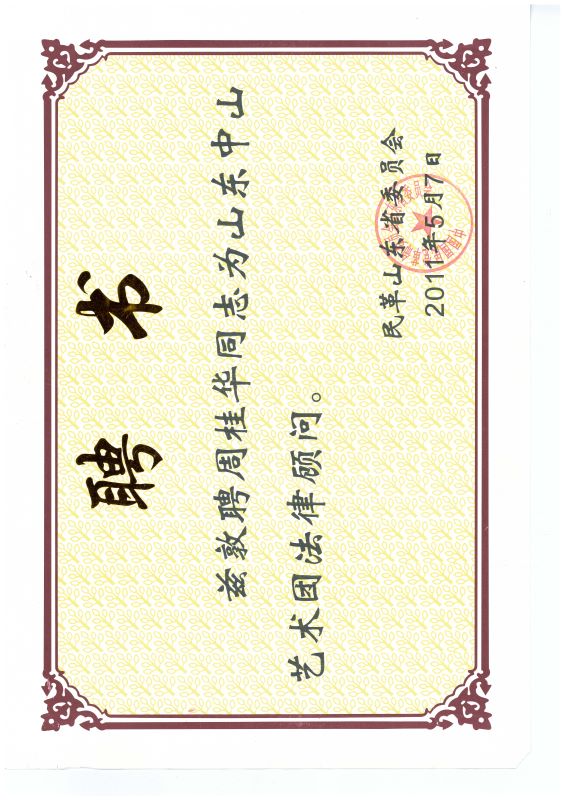 聘 书
兹敦聘周桂华同志为山东中山
艺术团法律顾问。
民革山东省委员会
2011年5月7日